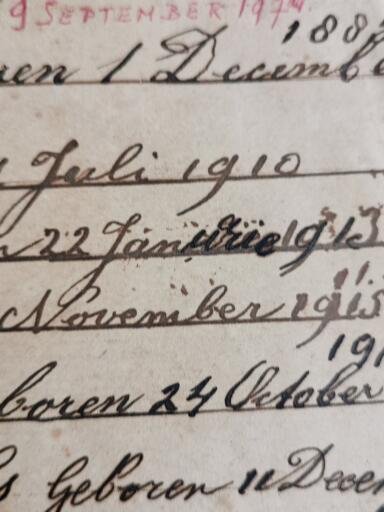 9 SEPTEMBER 1974.
1 Decemb
Juli 1910
22 Januarie 1913
November 1915
191
boren 24 October
Geboren 11 Decem